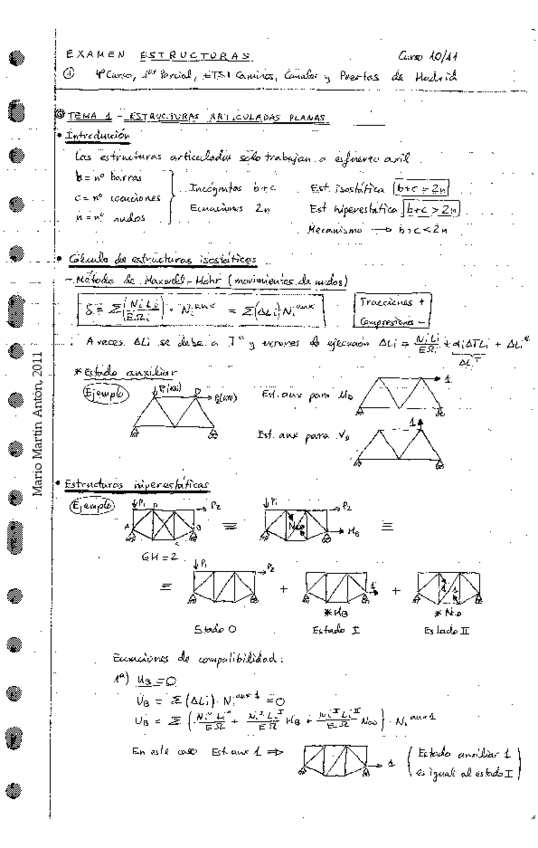 EXAMEN ESTRUCTURAS Curso 10/11
① 4º Curso, 1er Parcial, ETSI Caminos, Canales y Puertos de Madrid
TEMA 1 - ESTRUCTURAS ARTICULADAS PLANAS
• Introducción
Las estructuras articuladas solo trabajan a esfuerzo axil
b = nº barras
c = nº coacciones
n = nº nudos
Incógnitas b+c
Ecuaciones 2n
Est. isostática b+c = 2n
Est hiperestática b+c > 2n
Mecanismo → b+c < 2n
• Cálculo de estructuras isostáticas
- Método de Maxwell-Mohr (movimientos de nudos)
δ = Σ(NiLi/EΩi)·Ni^aux = Σ(ΔLi)Ni^aux
Tracciones +
Compresiones -
A veces ΔLi se debe a Tª y errores de ejecución ΔLi = NiLi/EΩi + αiΔTLi + ΔLi^e
ΔLi^T
* Estado auxiliar
Ejemplo
D
Est. aux para U_D
1
Est. aux para V_D
1
• Estructuras hiperestáticas
Ejemplo
P1 D P2
A B
C
≡
P1 P2
H_B
≡
GH=2
≡
P1 P2
+
1
+
1 1
* H_B
Estado O Estado I Estado II
Ecuaciones de compatibilidad:
1ª) U_B = O
U_B = Σ(ΔLi)·Ni^aux 1 = O
U_B = Σ(Ni°Li°/EΩ + Ni^I Li^I/EΩ H_B + Ni^II Li^II/EΩ N_CD)·Ni^aux 1
En este caso Est. aux 1 ⇒
1
(Estado auxiliar 1
es igual al estado I)
Mario Martín Antón, 2011